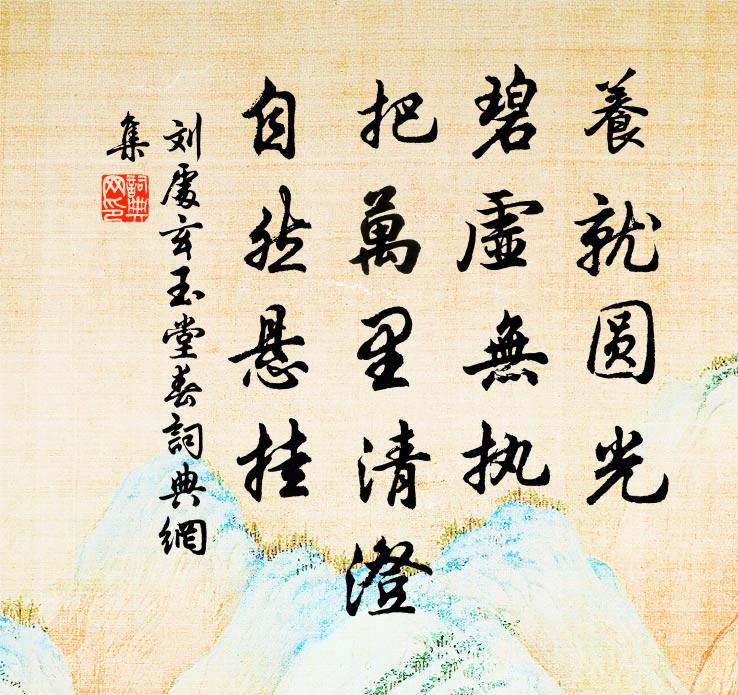 養就圆光
碧虛無执
把萬里清澄
自然悬挂
刘處玄玉堂春詞典網
集
詞典
网印